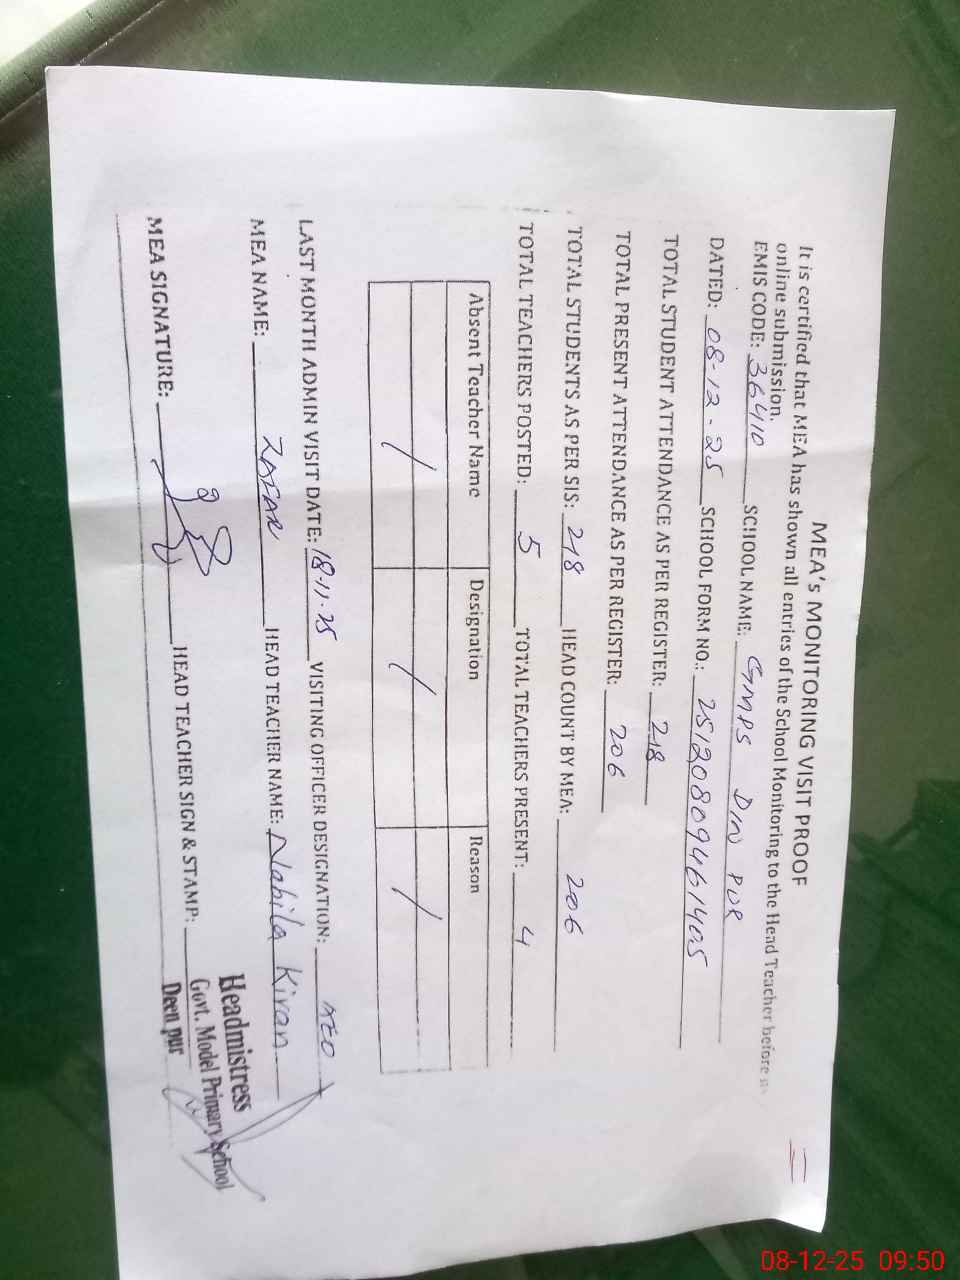 MEA's MONITORING VISIT PROOF
It is certified that MEA has shown all entries of the School Monitoring to the Head Teacher before
online submission.
EMIS CODE: 36410 SCHOOL NAME: GMPS DIN PUR
DATED: 08-12-25 SCHOOL FORM NO.: 25120809461405
TOTAL STUDENT ATTENDANCE AS PER REGISTER: 218
TOTAL PRESENT ATTENDANCE AS PER REGISTER: 206
TOTAL STUDENTS AS PER SIS: 218 HEAD COUNT BY MEA: 206
TOTAL TEACHERS POSTED: 5 TOTAL TEACHERS PRESENT: 4
Absent Teacher Name Designation Reason
/ / /
LAST MONTH ADMIN VISIT DATE: 18-11-25 VISITING OFFICER DESIGNATION: AEO
MEA NAME: ZAFAR HEAD TEACHER NAME: Nabila Kiran
MEA SIGNATURE: HEAD TEACHER SIGN & STAMP:
Headmistress
Govt. Model Primary School
Deen pur
08-12-25 09:50